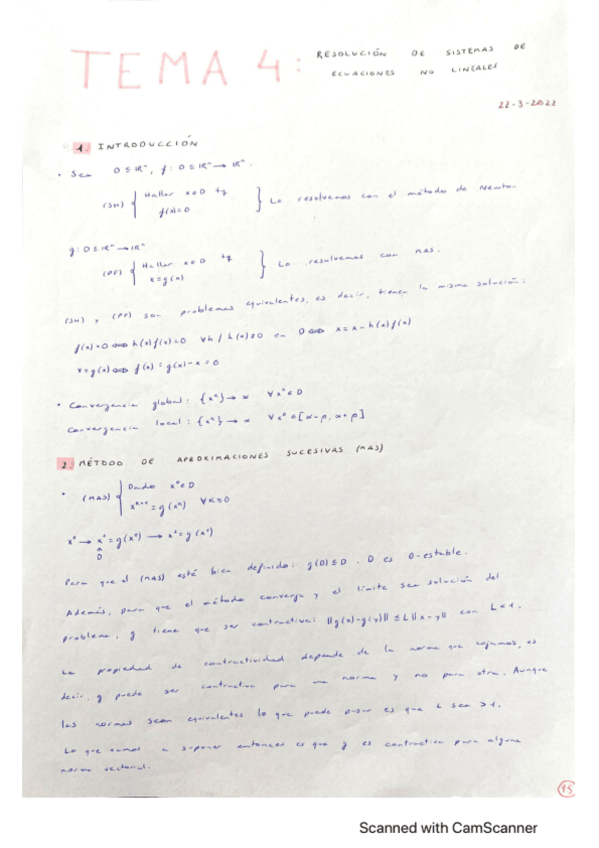 TEMA 4: RESOLUCIÓN DE SISTEMAS DE
ECUACIONES NO LINEALES
22-3-2022
1. INTRODUCCIÓN
• Sea D ⊆ ℝⁿ, f: D ⊆ ℝⁿ → ℝⁿ.
(SN) { Hallar x∈D tq
f(x)=0 } Lo resolvemos con el método de Newton
g: D ⊆ ℝⁿ → ℝⁿ
(PF) { Hallar x∈D tq
x=g(x) } Lo resolvemos con MAS.
(SN) y (PF) son problemas equivalentes, es decir, tienen la misma solución:
f(x)=0 ⟺ h(x)f(x)=0 ∀h / h(x)≠0 en D ⟺ x=x-h(x)f(x)
x=g(x) ⟺ f(x)=g(x)-x=0
• Convergencia global: {xᵏ} → α ∀x⁰∈D
Convergencia local: {xᵏ} → α ∀x⁰∈[α-ρ, α+ρ]
2. MÉTODO DE APROXIMACIONES SUCESIVAS (MAS)
• (MAS) { Dado x⁰∈D
xᵏ⁺¹=g(xᵏ) ∀k≥0
x⁰ → x¹=g(x⁰) → x²=g(x¹)
D
Para que el (MAS) esté bien definido: g(D)⊆D. D es D-estable.
Además, para que el método converja y el límite sea solución del
problema, g tiene que ser contractiva: ||g(x)-g(y)|| ≤ L||x-y|| con L<1.
La propiedad de contractividad depende de la norma que cojamos, es
decir, g puede ser contractiva para una norma y no para otra. Aunque
las normas sean equivalentes lo que puede pasar es que L sea >1.
Lo que vamos a suponer entonces es que g es contractiva para alguna
norma vectorial.
15
Scanned with CamScanner